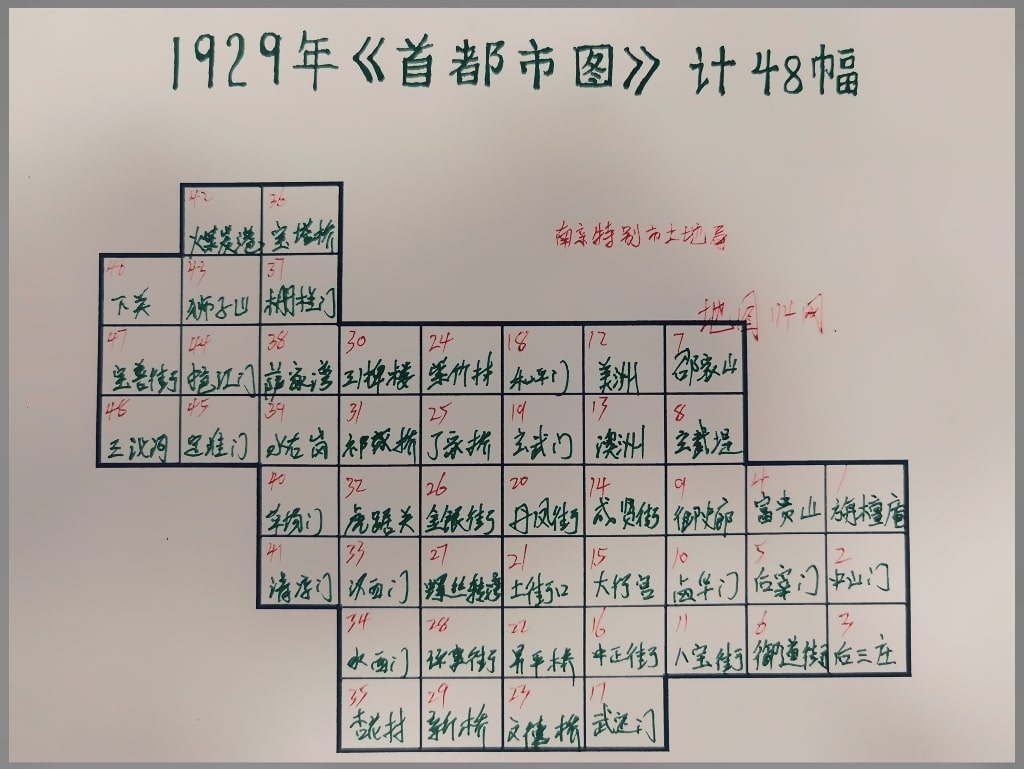 1929年《首都市图》计48幅
42 36
煤炭港 宝塔桥
南京特别市土地局
43 37
下关 狮子山 栅栏门
地图114网
47 44 38 30 24 18 12 7
宝善街 挹江门 薛家湾 三牌楼 紫竹林 和平门 美洲 邵家山
46 45 39 31 25 19 13 8
三汊河 定淮门 归云岗 祁家桥 丁家桥 玄武门 澳洲 玄武堤
40 32 26 20 14 9 4 1
草场门 虎踞关 金银街 丹凤街 成贤街 御史廊 富贵山 旃檀庵
41 33 27 21 15 10 5 2
清凉门 汉西门 螺丝转湾 土街口 大行宫 西华门 后宰门 中山门
34 28 22 16 11 6 3
水西门 评事街 昇平桥 中正街 八宝街 御道街 后三庄
35 29 23 17
杏花村 新桥 文德桥 武定门